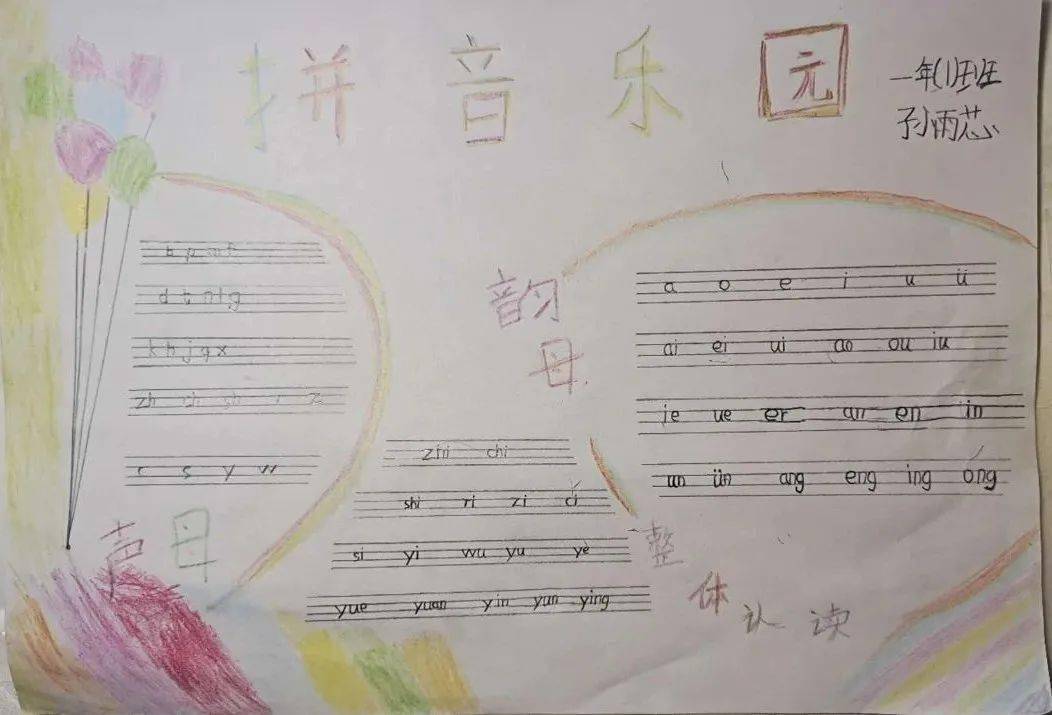 拼音乐园
一年(1)班
孙雨芯
b p m f
d t n l g
k h j q x
zh ch sh r z
c s y w
声母
韵母
a o e i u ü
ai ei ui ao ou iu
ie ue er an en in
un ün ang eng ing ong
zhi chi
shi ri zi ci
si yi wu yu ye
yue yuan yin yun ying
整体认读